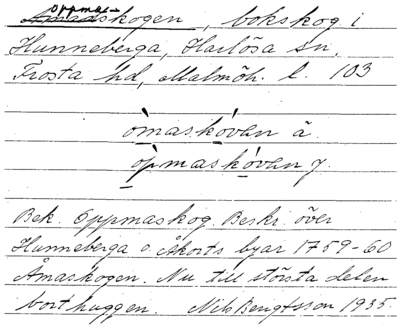 Oppma-
Åmaskogen, bokskog i
Hunneberga, Harlösa sn,
Frosta hd, Malmöh. l. 103
òmaskóvan ä.
òpmaskóvan y.
Bek. Oppmaskog. Beskr. över
Hunneberga o. Åkorts byar 1759-60
Åmaskogen. Nu till största delen
borthuggen. Nils Bengtsson 1935